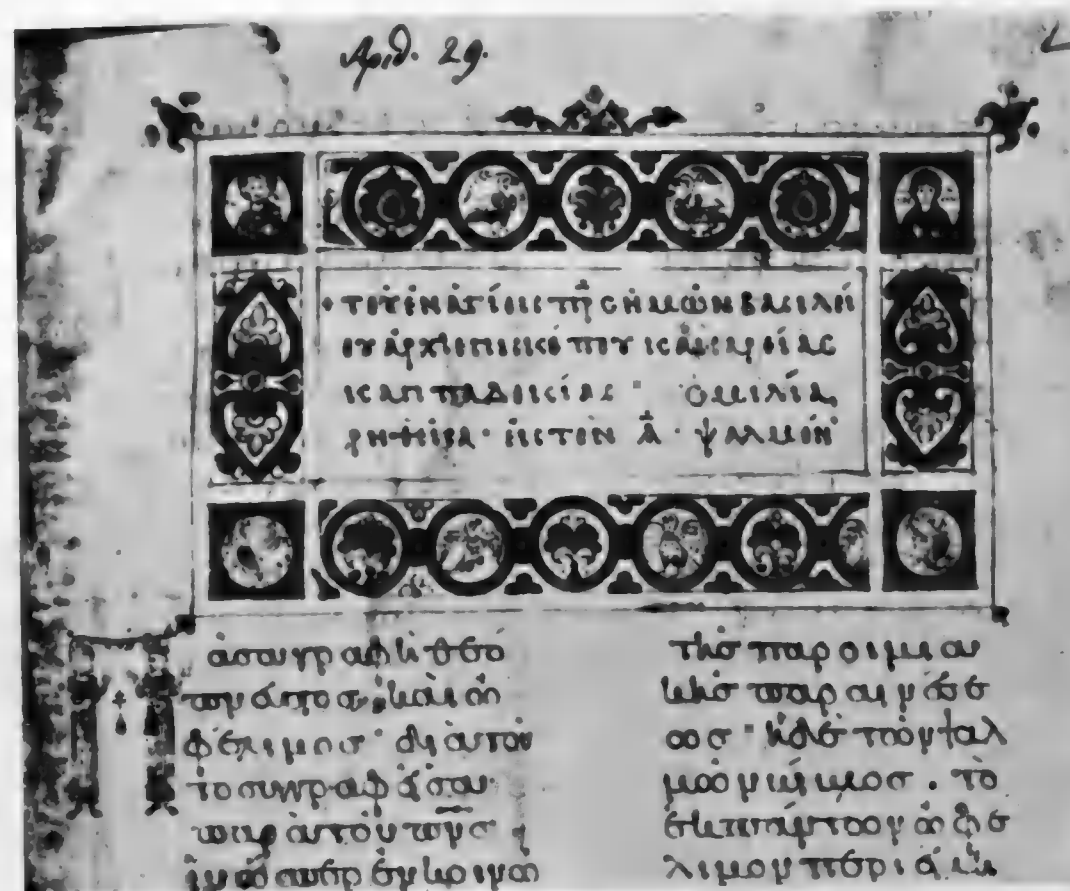 Αριθ. 29.
+ τοῦ ἐν ἁγίοις πρς ἡμῶν βασιλεί
ου ἀρχιεπισκόπου καισαρείας
καππαδοκίας · ὁμιλία
ῥηθεῖσα · εἰς τὸν Α · ψαλμόν
Πᾶσα γραφὴ θεό
πνευστος, καὶ ὠ
φέλιμος · διὰ τοῦ
το συγγραφεῖσα
παρὰ τοῦ πνς
ἵν' ὥσπερ ἐν κοινῶ
τῆς παροιμίαν
καὶ ὁ παραινέσε
ως · ἡ δὲ τῶν ψαλ
μῶν βίβλος . τὸ
ἐκ πάντων ὠφέ
λιμον περιεί